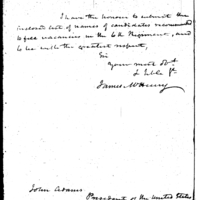 I have the honour to submit the
inclosed list of names of candidates recommended
to fill vacancies in the 6th Regiment, and
to be with the greatest respect,
Sir
your most Obt
James McHenry
John Adams
President of the United States